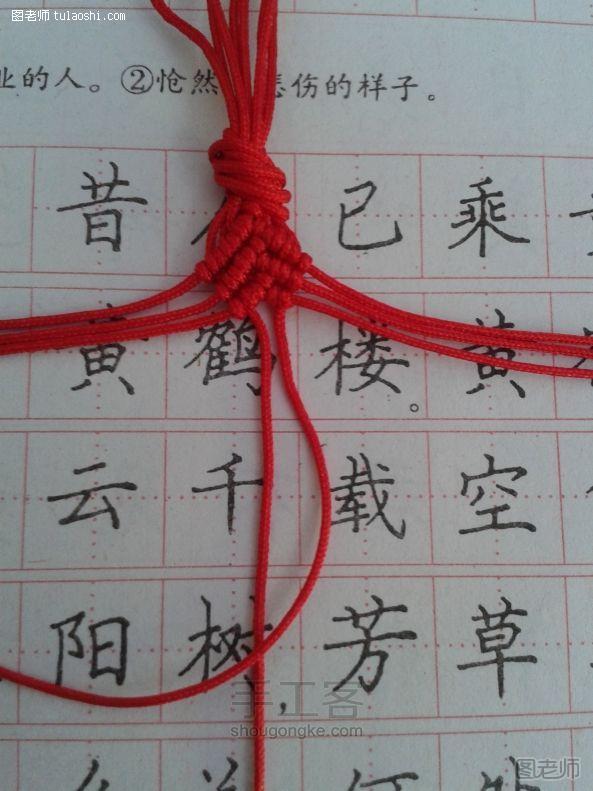 图老师 tulaoshi.com
业的人。②怆然 悲伤的样子。
昔 已 乘
黄 鹤 楼。 黄
云 千 载 空
阳 树, 芳 草
手工客
shougongke.com
图老师